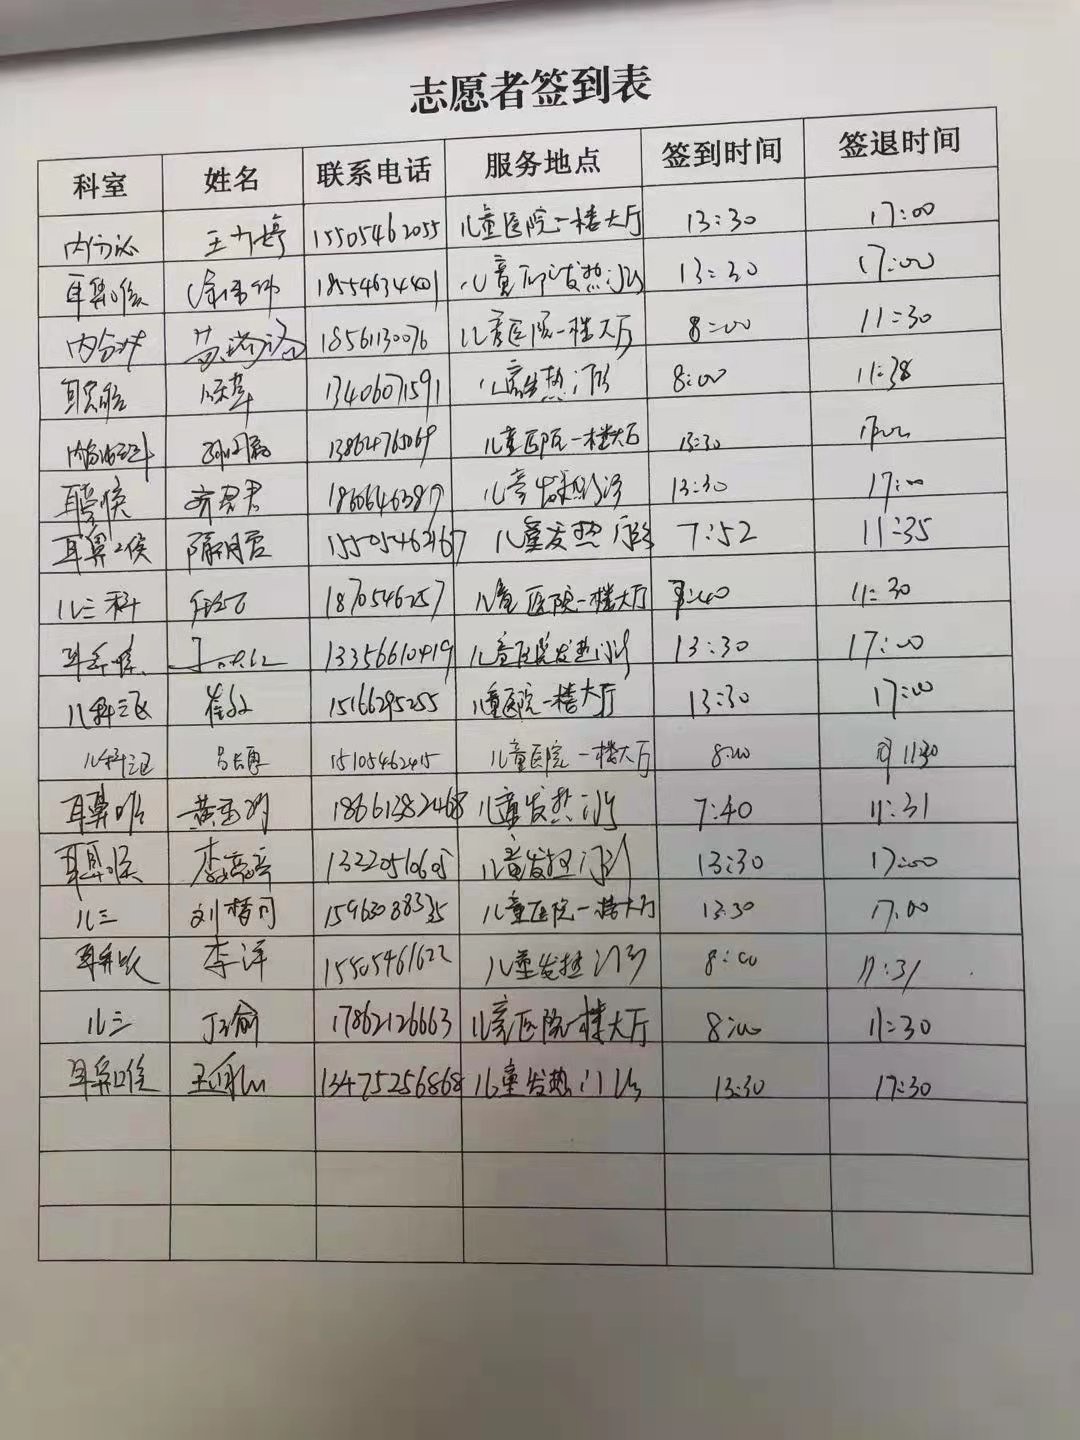 志愿者签到表
科室 姓名 联系电话 服务地点 签到时间 签退时间
内分泌 15505462055 儿童医院一楼大厅 13:30 17:00
耳鼻喉 18554634401 儿童 发热门诊 13:30 17:00
内分泌 18561130076 儿童医院一楼大厅 8:00 11:30
13406071591 儿童发热门诊 8:00 11:38
13864765069 儿童医院一楼大厅 13:30
耳鼻喉 齐君君 儿童发热门诊 13:30 17:00
耳鼻口喉 15505462167 儿童发热门诊 7:52 11:35
儿三科 1870546257 儿童医院一楼大厅 11:30
13356610419 儿童医院发热门诊 13:30 17:00
儿科三区 15166295255 儿童医院一楼大厅 13:30 17:00
儿科三区 15105462415 儿童医院一楼大厅 8:00 11:30
耳鼻喉 18661382468 儿童发热门诊 7:40 11:31
耳鼻喉 李亮亮 13220510605 儿童发热门诊 13:30 17:00
儿三 15963038335 儿童医院一楼大厅 13:30 17:00
李洋 15505461622 儿童发热门诊 8:00 11:31
儿三 17862126663 儿童医院一楼大厅 8:00 11:30
耳鼻口喉 13475256868 儿童发热门诊 13:30 17:30